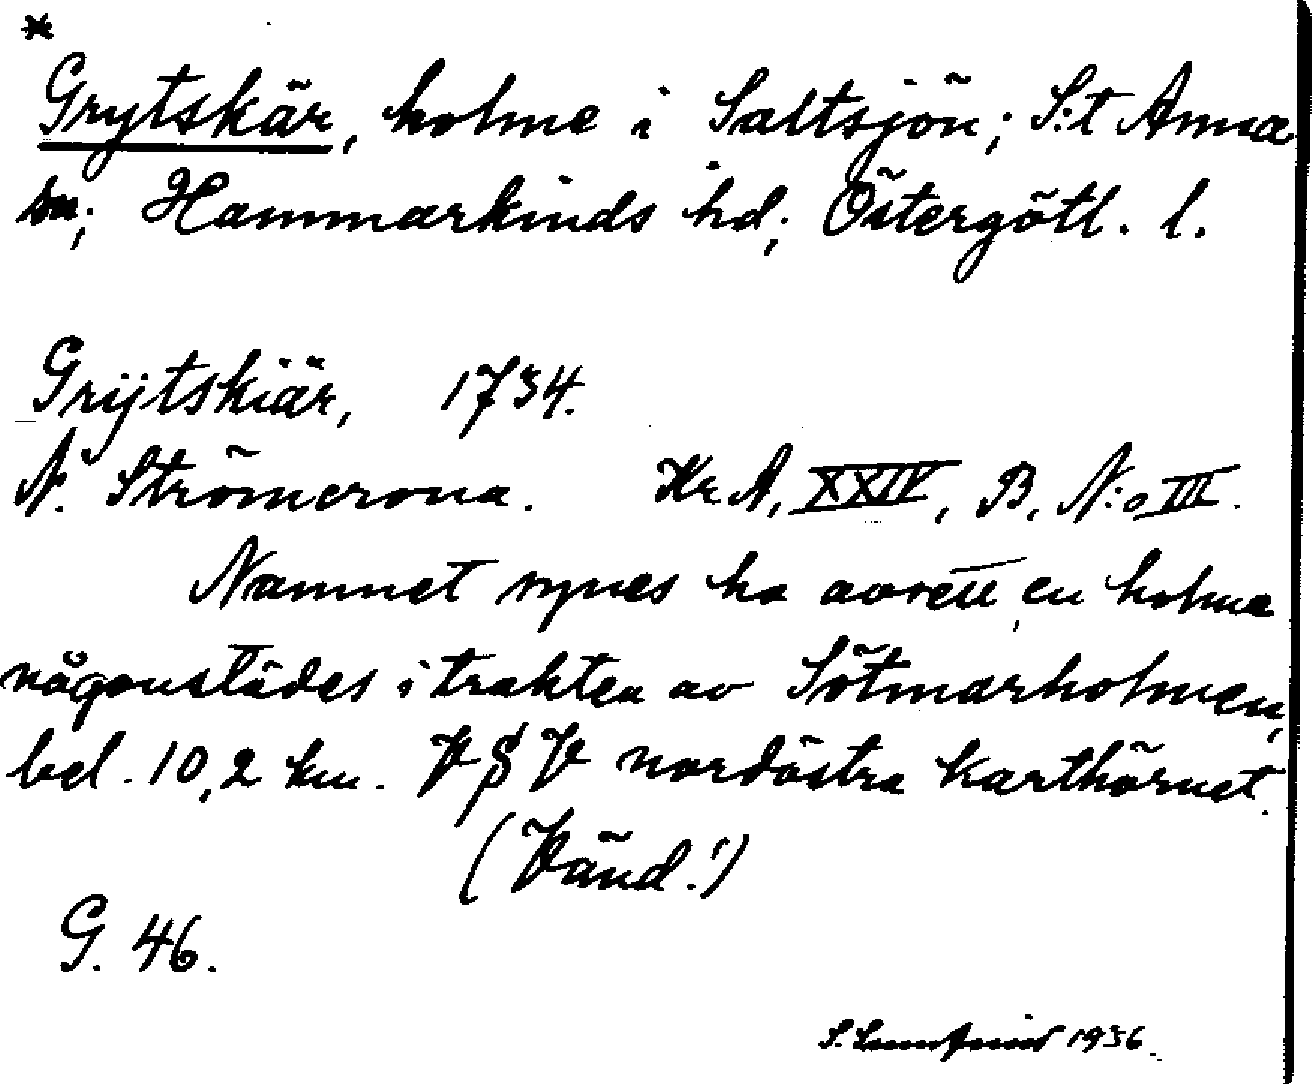 *
Grytskär, holme i Saltsjön; S:t Anna
sn; Hammarkinds hd; Östergötl. l.
Grijtskiär, 1734.
N. Strömcrona. Kr. A, XXIV, B, N:o III.
Namnet synes ha avsett en holme
någonstädes i trakten av Sötmarholmen,
bel. 10,2 km. VSV nordöstra karthörnet.
(Vänd!)
G. 46.
S. 1936.